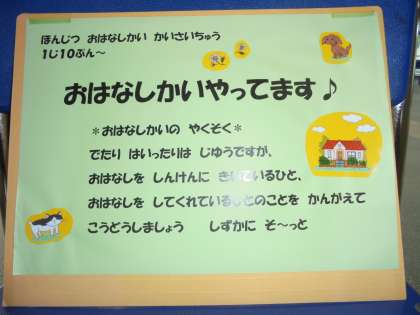 ほんじつ おはなしかい かいさいちゅう
1じ10ぷん～
おはなしかいやってます♪
＊おはなしかいの やくそく＊
でたり はいったりは じゆうですが、
おはなしを しんけんに きいているひと、
おはなしを してくれているひとのことを かんがえて
こうどうしましょう しずかに そ～っと